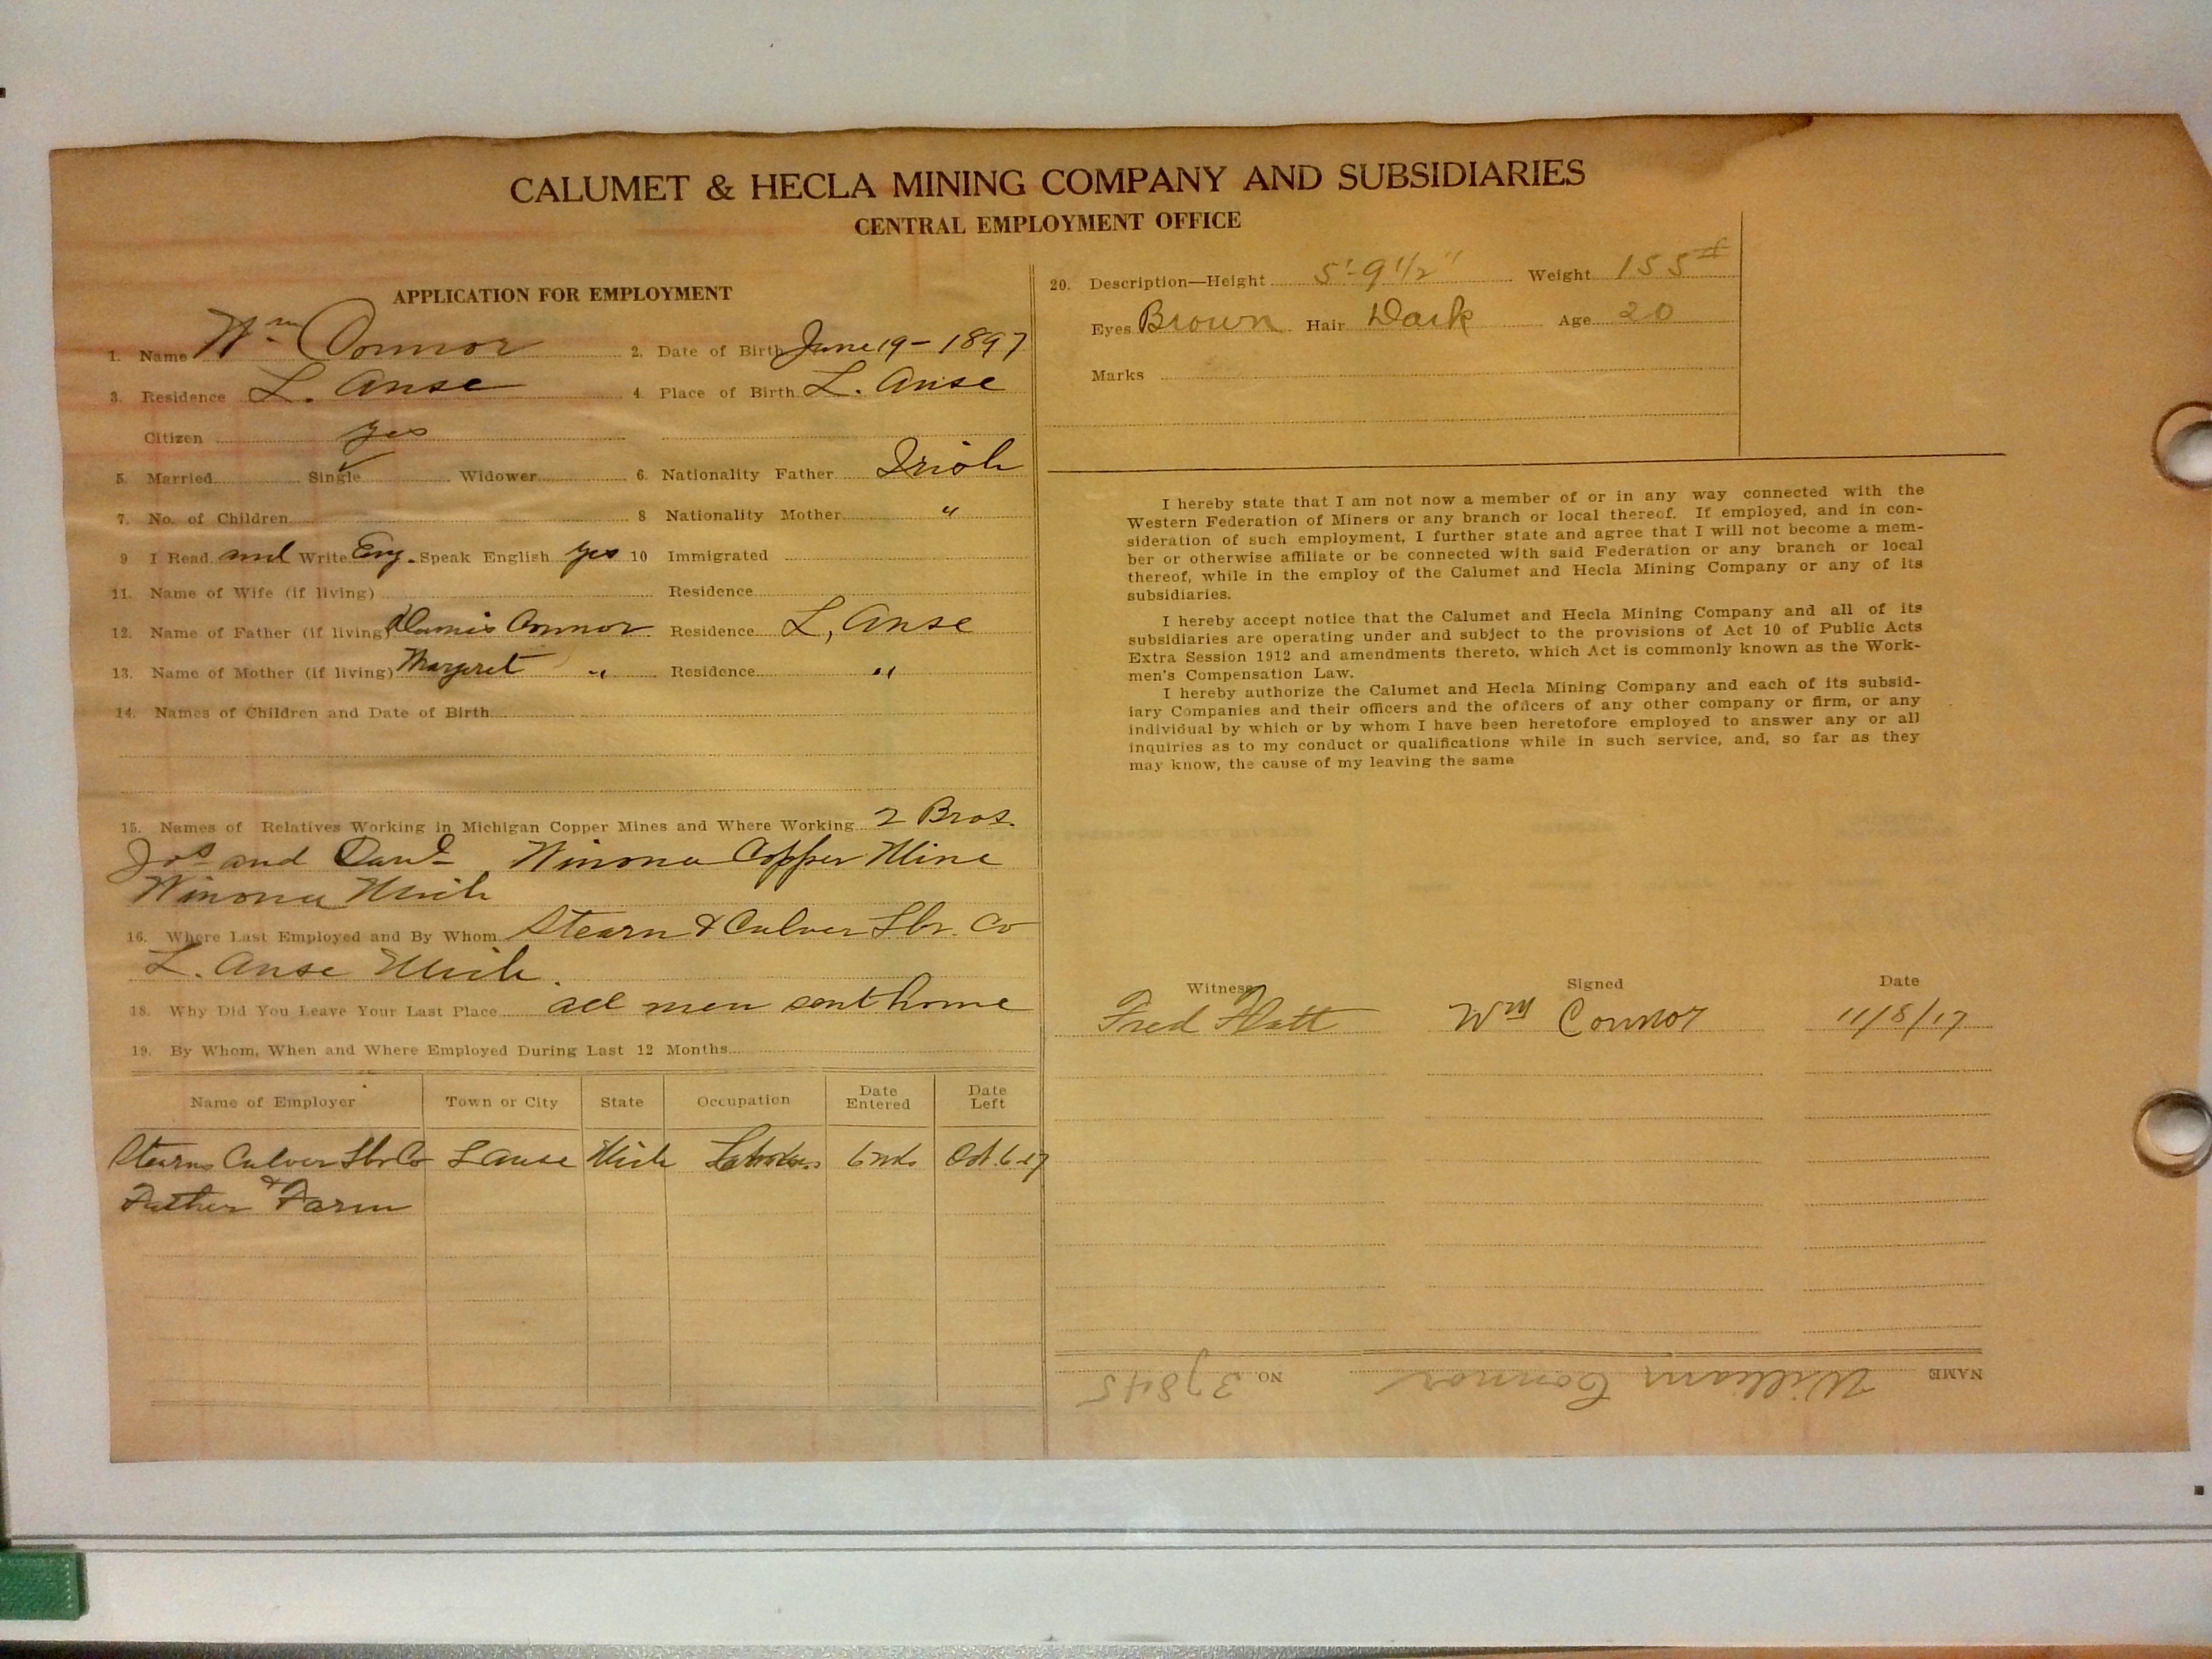 CALUMET & HECLA MINING COMPANY AND SUBSIDIARIES
CENTRAL EMPLOYMENT OFFICE
APPLICATION FOR EMPLOYMENT
1. Name Wm Connor 2. Date of Birth June 19 - 1897
3. Residence L. Anse 4. Place of Birth L. Anse
Citizen yes
5. Married Single ✓ Widower 6. Nationality Father Irish
7. No. of Children 8 Nationality Mother "
9 I Read and Write Eng. Speak English yes 10 Immigrated
11. Name of Wife (if living) Residence
12. Name of Father (if living) Connor Residence L, Anse
13. Name of Mother (if living) Margaret " Residence "
14. Names of Children and Date of Birth
15. Names of Relatives Working in Michigan Copper Mines and Where Working 2 Bros.
Jos and Danl Winona Copper Mine
Winona Mich
16. Where Last Employed and By Whom Stearn & Culver Lbr. Co
L. Anse Mich.
18. Why Did You Leave Your Last Place all men sent home
19. By Whom, When and Where Employed During Last 12 Months
Name of Employer Town or City State Occupation Date Entered Date Left
Stearns Culver Lbr Co Lanse Mich Labor 6 Oct. 6-17
Father Farm
20. Description—Height 5'-9 1/2" Weight 155#
Eyes Brown Hair Dark Age 20
Marks
I hereby state that I am not now a member of or in any way connected with the
Western Federation of Miners or any branch or local thereof. If employed, and in con-
sideration of such employment, I further state and agree that I will not become a mem-
ber or otherwise affiliate or be connected with said Federation or any branch or local
thereof, while in the employ of the Calumet and Hecla Mining Company or any of its
subsidiaries.
I hereby accept notice that the Calumet and Hecla Mining Company and all of its
subsidiaries are operating under and subject to the provisions of Act 10 of Public Acts
Extra Session 1912 and amendments thereto, which Act is commonly known as the Work-
men's Compensation Law.
I hereby authorize the Calumet and Hecla Mining Company and each of its subsid-
iary Companies and their officers and the officers of any other company or firm, or any
individual by which or by whom I have been heretofore employed to answer any or all
inquiries as to my conduct or qualifications while in such service, and, so far as they
may know, the cause of my leaving the same
Witness Signed Date
Fred Flatt Wm Connor 11/8/17
NAME William Connor NO. 37845